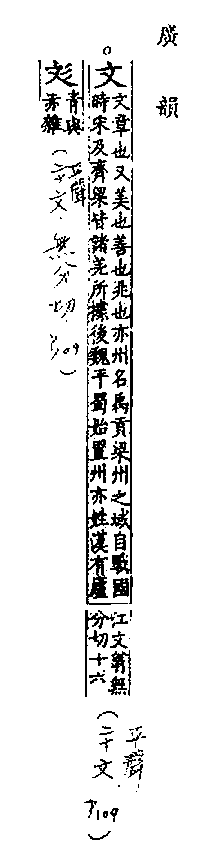 廣韻
文
文章也又美也善也兆也亦州名禹貢梁州之域自戰國
時宋及齊梁皆諸羌所據後魏平蜀始置州亦姓漢有廬
江文翁無
分切十六
(平聲·
二十文.
P109)
彣
青與
赤雜
(平聲
二十文.無分切.P109)